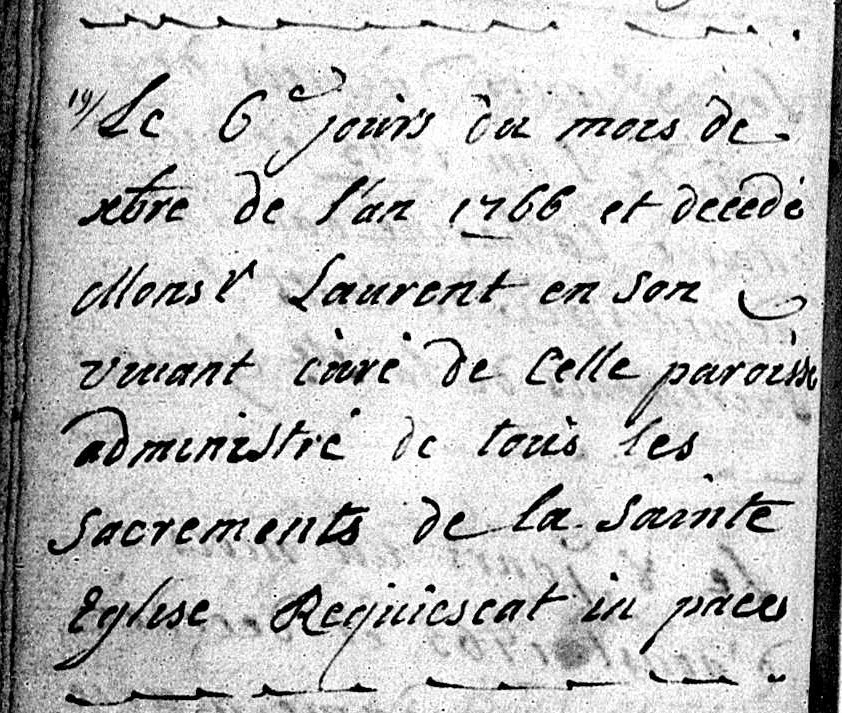 19/ Le 6e jours du mois de
xbre de l'an 1766 et decedé
Monsr Laurent en son
vivant curé de Celle paroisse
administré de tous les
Sacrements de la Sainte
Eglise Requiescat in pace